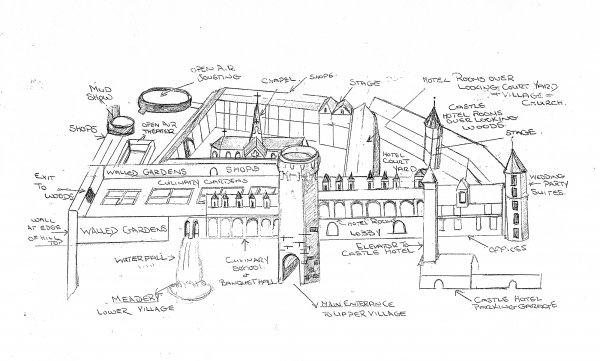 OPEN AIR
JOUSTING
CHAPEL
SHOPS
STAGE
HOTEL ROOMS OVER
LOOKING COURT YARD
+ VILLAGE +
CHURCH.
MUD
SHOW
OPEN AIR
THEATER
CASTLE
HOTEL ROOMS
OVER LOOKING
WOODS
STAGE
SHOPS
HOTEL
COURT
YARD
WALLED GARDENS
SHOPS
CULINARY GARDENS
EXIT
TO
WOODS
WEDDING
PARTY
SUITES
WALL
AT EDGE
OF HILL
TOP
WALLED GARDENS
HOTEL ROOMS
LOBBY
WATERFALL
CULINARY
SCHOOL
& BANQUET HALL
ELEVATOR TO
CASTLE HOTEL
OFFICES
MEADERY
LOWER VILLAGE
MAIN ENTERANCE
TO UPPER VILLAGE
CASTLE HOTEL
PARKING GARAGE